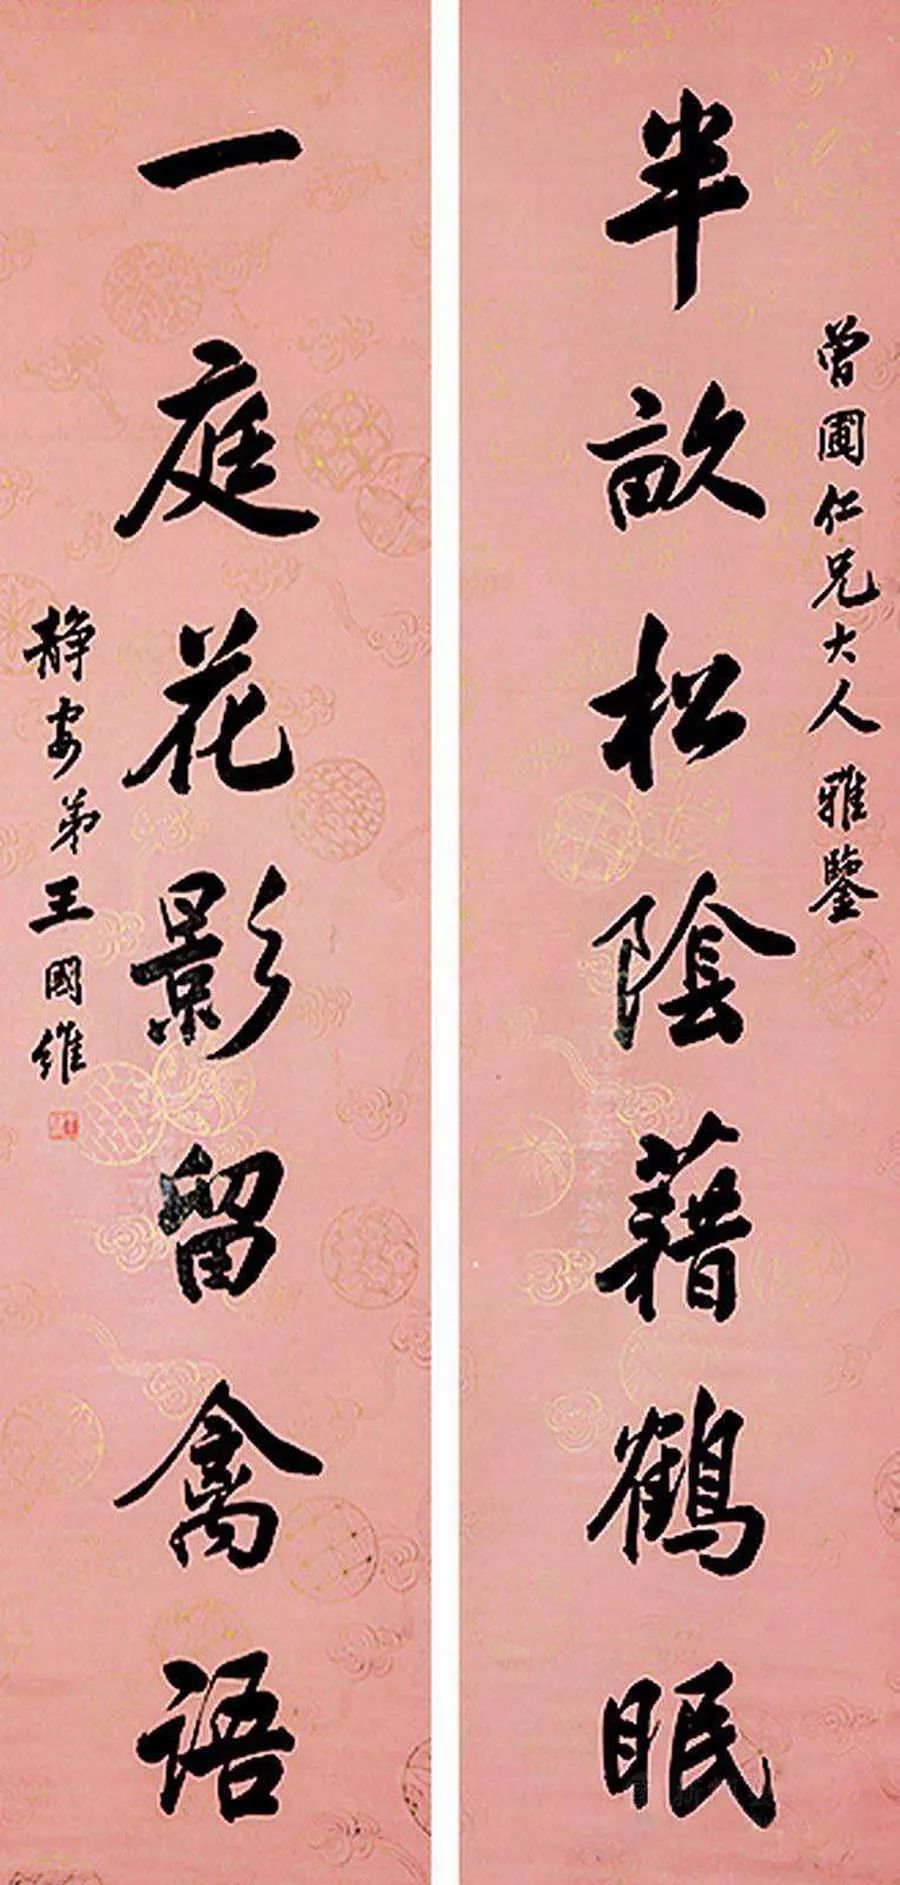 曾圃仁兄大人雅鑒
半畝松陰藉鶴眠
一庭花影留禽語
靜安弟王國維